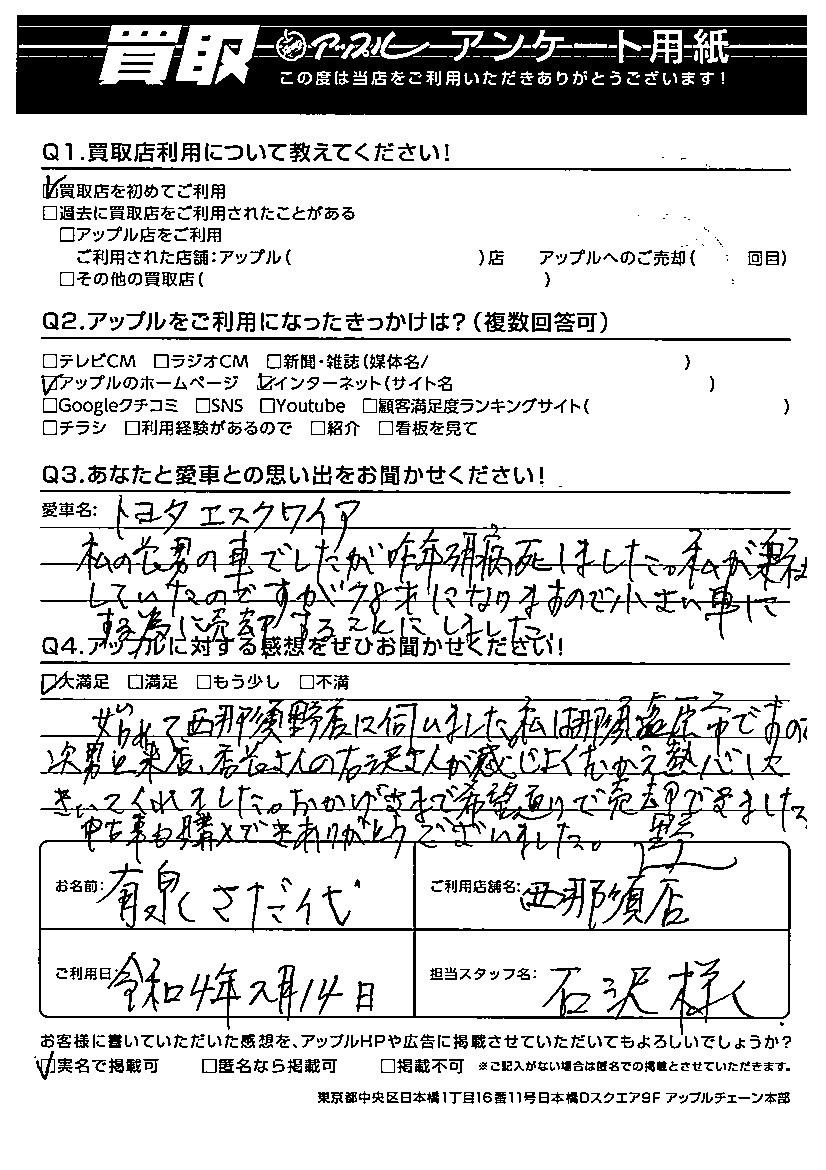 買取 アップル アンケート用紙
この度は当店をご利用いただきありがとうございます!
Q1.買取店利用について教えてください!
☑買取店を初めてご利用
□過去に買取店をご利用されたことがある
□アップル店をご利用
ご利用された店舗:アップル( )店 アップルへのご売却( 回目)
□その他の買取店( )
Q2.アップルをご利用になったきっかけは?(複数回答可)
□テレビCM □ラジオCM □新聞・雑誌(媒体名/ )
☑アップルのホームページ ☑インターネット(サイト名 )
□Googleクチコミ □SNS □Youtube □顧客満足度ランキングサイト( )
□チラシ □利用経験があるので □紹介 □看板を見て
Q3.あなたと愛車との思い出をお聞かせください!
愛車名: トヨタ エスクワイア
私の長男の車でしたが昨年 病死しました。私が乗
していたのですが78才になりますので小さい車に
する為に売却することにしました。
Q4.アップルに対する感想をぜひお聞かせください!
☑大満足 □満足 □もう少し □不満
始めて西那須野店に伺いました。私は那須塩原市ですので
次男と来店、店長さんの石沢さんが感じよくむかえ熱心に
きいてくれました。おかげさまで希望通りで売却できました
中古車も購入できありがとうございました。
お名前: 有泉 さだ代
ご利用店舗名: 西那須店
野
ご利用日: 令和4年2月14日
担当スタッフ名: 石沢 様
お客様に書いていただいた感想を、アップルHPや広告に掲載させていただいてもよろしいでしょうか?
☑実名で掲載可 □匿名なら掲載可 □掲載不可 ※ご記入がない場合は匿名での掲載とさせていただきます。
東京都中央区日本橋1丁目16番11号日本橋Dスクエア9F アップルチェーン本部